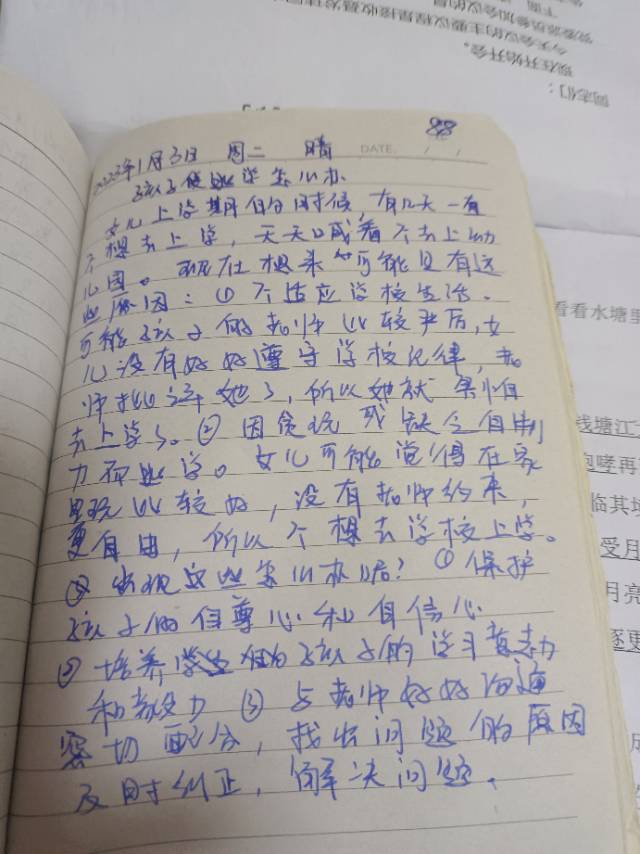 同志们：
现在开始开会。
88
2023年1月3日 周二 晴 DATE. / /
孩子使逃学怎么办
女儿上学期有的时候，有几天一有
不想去上学，天天喊着不去上幼
儿园。现在想来可能只有这
些原因：①不适应学校生活。
可能孩子的老师比较严厉，女
儿没有好好遵守学校纪律，老
师批评她了，所以她就害怕
去上学了。②因贪玩或缺乏自制
力而逃学。女儿可能觉得在家
里玩比较好，没有老师约束，
更自由，所以不想去学校上学。
出现这些怎么办呢？①保护
孩子的自尊心和自信心
②培养学生 孩子的学习主动
和毅力 ③与老师好好沟通
密切配合，找出问题的原因
及时纠正，解决问题。
看看水塘里
钱塘江
临其境
受月
月亮
逐更